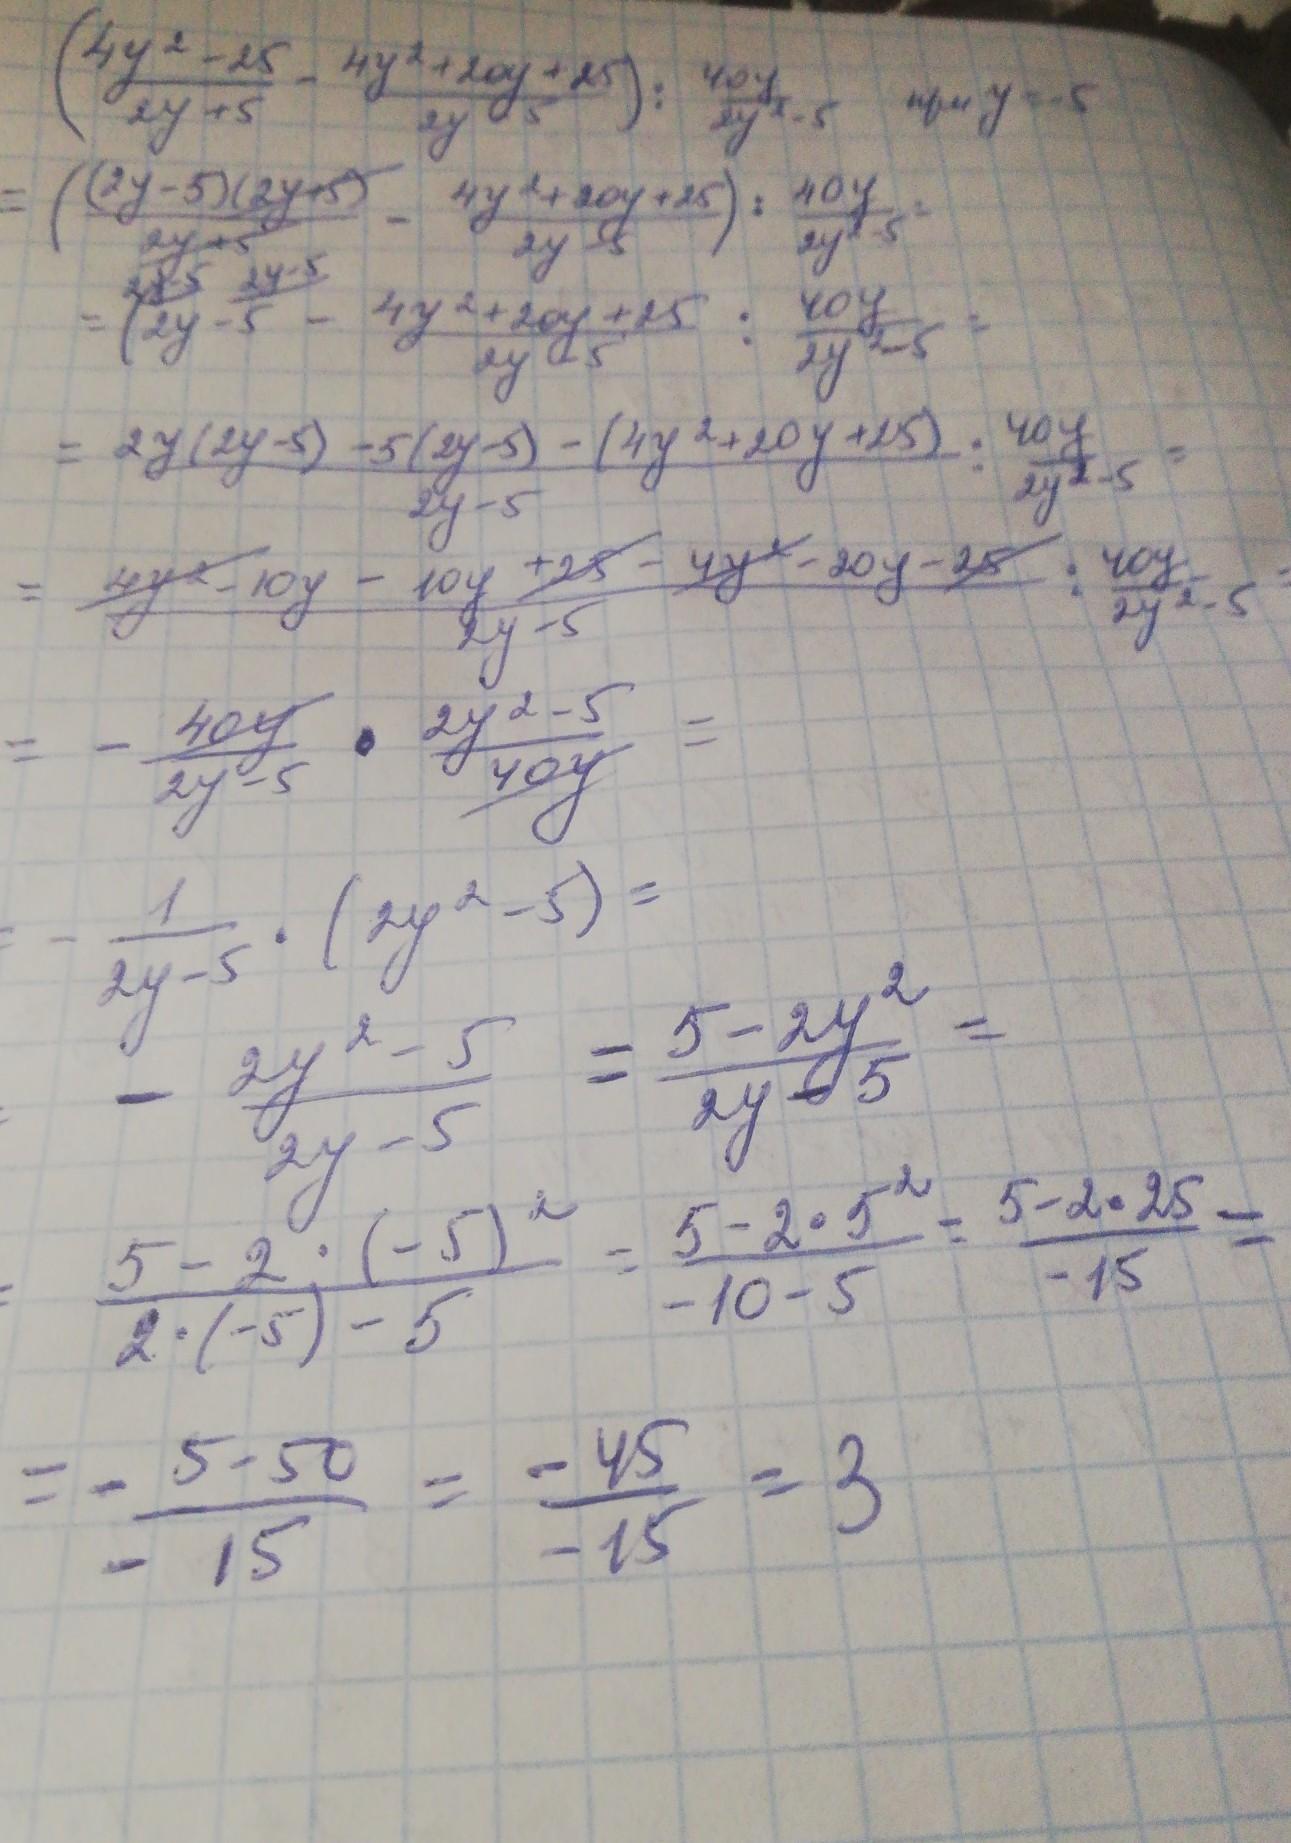 (4y² - 25)/(2y + 5) - (4y² + 20y + 25)/(2y - 5)) : 40y/(2y² - 5) при y = -5
= ((2y - 5)(2y + 5)/(2y + 5) - (4y² + 20y + 25)/(2y - 5)) : 40y/(2y² - 5) =
= (2y - 5 - (4y² + 20y + 25)/(2y - 5) : 40y/(2y² - 5) =
= (2y(2y - 5) - 5(2y - 5) - (4y² + 20y + 25))/(2y - 5) : 40y/(2y² - 5) =
= (4y² - 10y - 10y + 25 - 4y² - 20y - 25)/(2y - 5) : 40y/(2y² - 5) =
= - 40y/(2y - 5) • (2y² - 5)/40y =
= - 1/(2y - 5) • (2y² - 5) =
- (2y² - 5)/(2y - 5) = (5 - 2y²)/(2y - 5) =
= (5 - 2 • (-5)²)/(2 • (-5) - 5) = (5 - 2 • 5²)/(-10 - 5) = (5 - 2 • 25)/(-15) =
= - (5 - 50)/(- 15) = (-45)/(-15) = 3